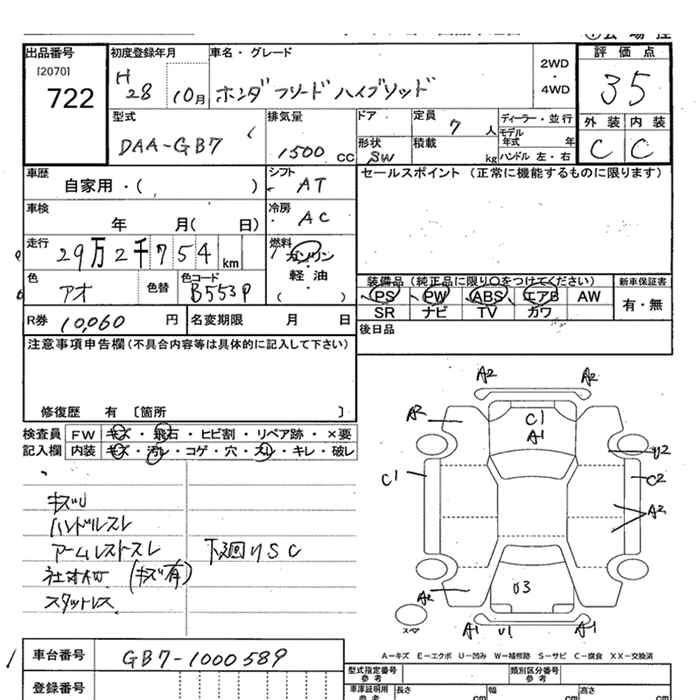 出品番号 初度登録年月 車名・グレード 評価点
[2070]
722
H28 10月 ホンダ フリード ハイブリッド 2WD・4WD 35
型式 排気量 ドア 定員 ディーラー・並行 外装 内装
DAA-GB7 1500cc 7人 モデル年式 年 C C
形状 SW 積載 kg ハンドル 左・右
車歴 シフト セールスポイント (正常に機能するものに限ります)
自家用・( ) AT
車検 冷房
年 月( 日) AC
走行 燃料
29万2千754km ガソリン
軽・油
( ・ )
色 色替 色コード 装備品(純正品に限り○をつけてください) 新車保証書
アオ B553P PS PW ABS エアB AW 有・無
SR ナビ TV カワ
R券 10,060円 名変期限 月 日 後日品
注意事項申告欄(不具合内容等は具体的に記入して下さい)
修復歴 有 〔箇所 〕
検査員 FW キズ・飛石・ヒビ割・リペア跡・×要
記入欄 内装 キズ・汚レ・コゲ・穴・スレ・キレ・破レ
キズU
ハンドルスレ
アームレストスレ 下廻りSC
(キズ有)
スタットレス
A2 A2
A2 C1 A1 U2
C1 C2
A2
A2 U3
スペア A1 U1 A1
A-キズ E-エクボ U-凹み W-補修跡 S-サビ C-腐食 XX-交換済
車台番号 GB7-1000589
型式指定番号 参考 類別区分番号 参考
登録番号 車庫証明用 参考 長さ cm 幅 cm 高さ cm